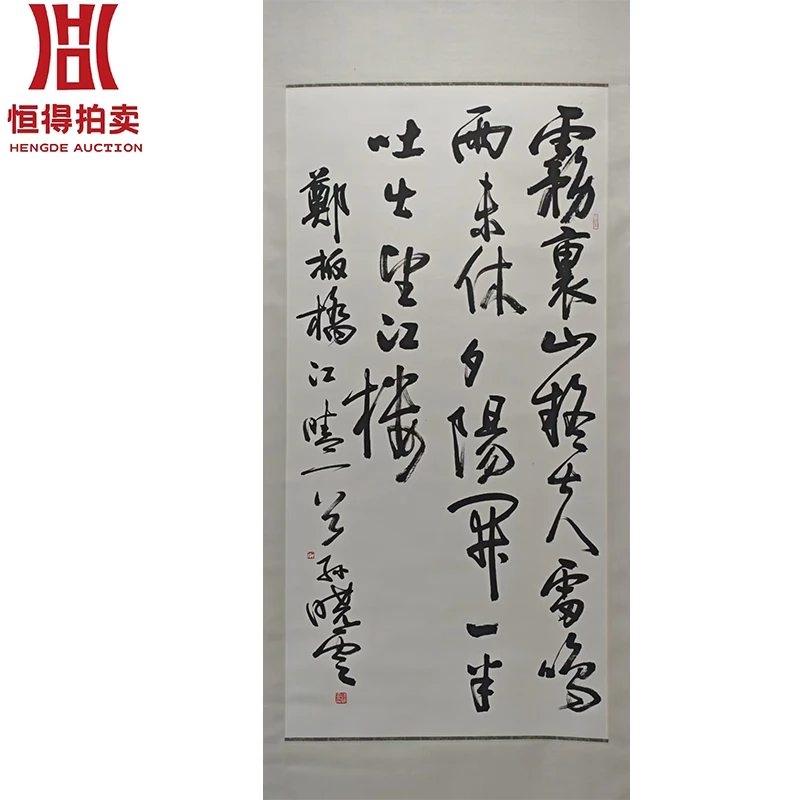 恒得拍卖
HENGDE AUCTION
霧裏山疑失雷鳴
雨未休夕陽開一半
吐出望江樓
鄭板橋江晴一首孫曉雲